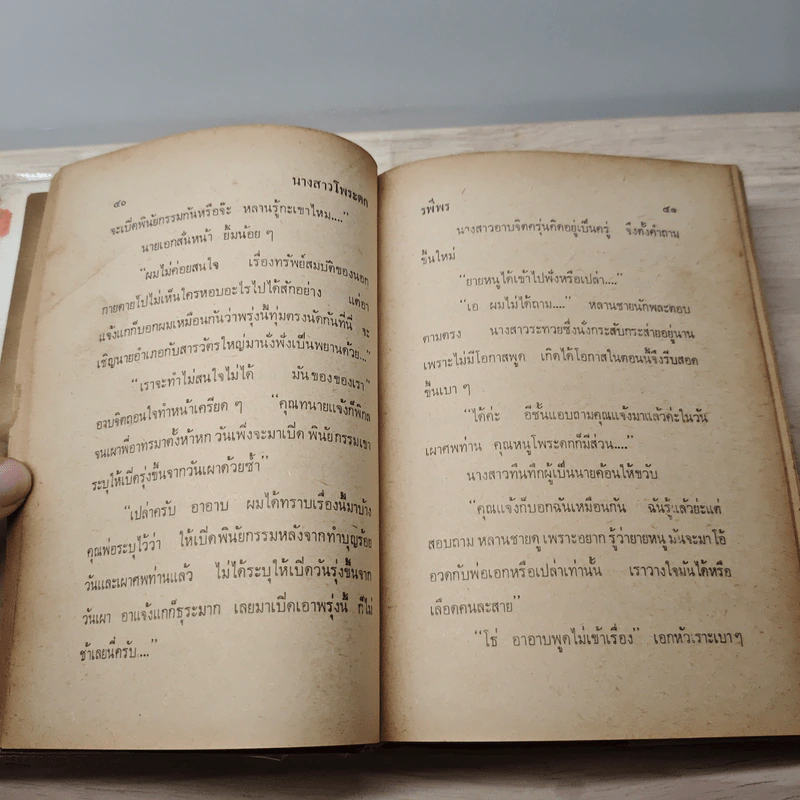 ๔๐ นางสาวโพระดก
จะเปิดพินัยกรรมกันหรือจ๊ะ หลานรู้กะเขาไหม...."
นายเอกสั่นหน้า ยิ้มน้อย ๆ
"ผมไม่ค่อยสนใจ เรื่องทรัพย์สมบัติของนอก
กายตายไปไม่เห็นใครหอบอะไรไปได้สักอย่าง แต่อา
แจ้งแกก็บอกผมเหมือนกันว่าพรุ่งนี้ทุ่มตรงนัดกันที่นี่ จะ
เชิญนายอำเภอกับสารวัตรใหญ่มานั่งฟังเป็นพยานด้วย..."
"เราจะทำไม่สนใจไม่ได้ มันของของเรา"
อาบจิตถอนใจทำหน้าเครียด ๆ "คุณทนายแจ้งก็พิกล
จนเผาพี่อาทรมาตั้งห้าหก วันเพิ่งจะมาเปิด พินัยกรรมเขา
ระบุให้เปิดรุ่งขึ้นจากวันเผาด้วยซ้ำ"
"เปล่าครับ อาอาบ ผมได้ทราบเรื่องนี้มาบ้าง
คุณพ่อระบุไว้ว่า ให้เปิดพินัยกรรมหลังจากทำบุญร้อย
วันและเผาศพท่านแล้ว ไม่ได้ระบุให้เปิดวันรุ่งขึ้นจาก
วันเผา อาแจ้งแกก็ธุระมาก เลยมาเปิดเอาพรุ่งนี้ ก็ไม่
ช้าเลยนี่ครับ...."
รพีพร ๔๑
นางสาวอาบจิตครุ่นคิดอยู่เป็นครู่ จึงตั้งคำถาม
ขึ้นใหม่
"ยายหนูได้เข้าไปฟังหรือเปล่า...."
"เอ ผมไม่ได้ถาม...." หลานชายนักพละตอบ
ตามตรง นางสาวระทวยซึ่งนั่งกระสับกระส่ายอยู่นาน
เพราะไม่มีโอกาสพูด เกิดได้โอกาสในตอนนี้จึงรีบสอด
ขึ้นเบา ๆ
"ได้ค่ะ อีชั้นแอบถามคุณแจ้งมาแล้วค่ะในวัน
เผาศพท่าน คุณหนูโพระดกก็มีส่วน...."
นางสาวทึนทึกผู้เป็นนายค้อนให้ขวับ
"คุณแจ้งก็บอกฉันเหมือนกัน ฉันรู้แล้วย่ะแต่
สอบถาม หลานชายดู เพราะอยาก รู้ว่ายายหนู มันจะมาโอ้
อวดกับพ่อเอกหรือเปล่าเท่านั้น เราวางใจมันได้หรือ
เลือดคนละสาย"
"โธ่ อาอาบพูดไม่เข้าเรื่อง" เอกหัวเราะเบาๆ